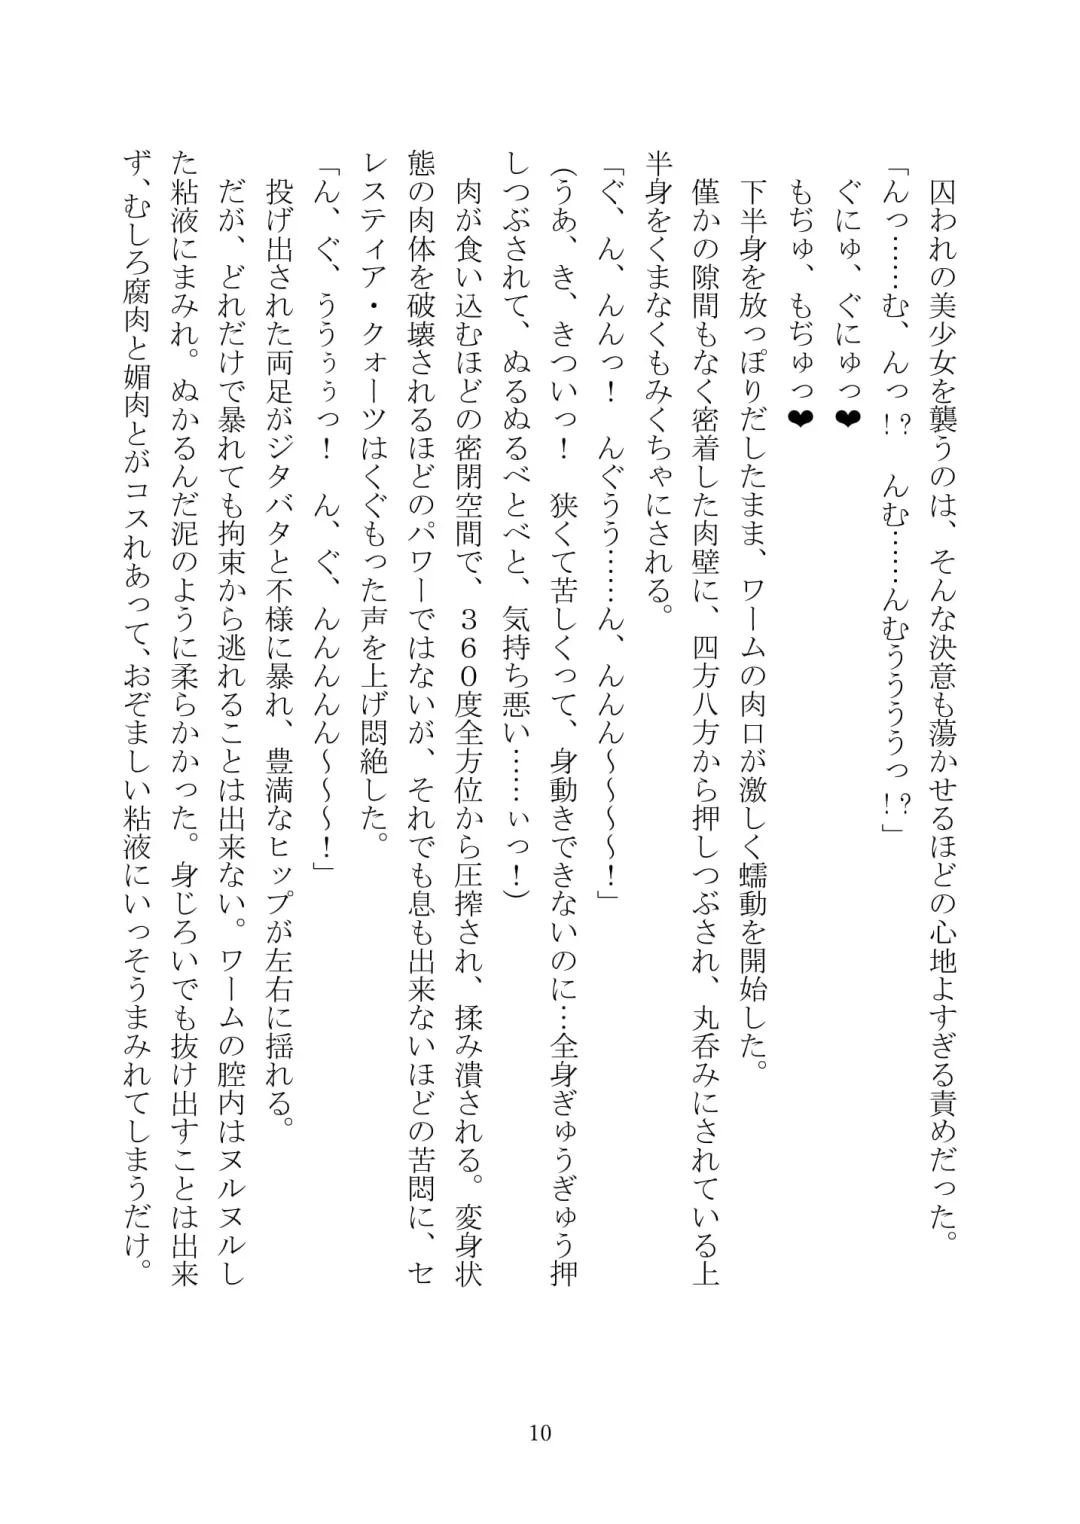 囚われの美少女を襲うのは、そんな決意も蕩かせるほどの心地よすぎる責めだった。
「んっ……む、んっ!?　んむ……んむうううっ!?」
ぐにゅ、ぐにゅっ❤
もぢゅ、もぢゅっ❤
下半身を放っぽりだしたまま、ワームの肉口が激しく蠕動を開始した。
僅かの隙間もなく密着した肉壁に、四方八方から押しつぶされ、丸呑みにされている上
半身をくまなくもみくちゃにされる。
「ぐ、ん、んんっ！　んぐうう……ん、んんん～～～～！」
(うあ、き、きついっ！　狭くて苦しくって、身動きできないのに…全身ぎゅうぎゅう押
しつぶされて、ぬるぬるべとべと、気持ち悪い……ぃっ！)
肉が食い込むほどの密閉空間で、３６０度全方位から圧搾され、揉み潰される。変身状
態の肉体を破壊されるほどのパワーではないが、それでも息も出来ないほどの苦悶に、セ
レスティア・クォーツはくぐもった声を上げ悶絶した。
「ん、ぐ、ううぅぅっ！　ん、ぐ、んんんんん～～～！」
投げ出された両足がジタバタと不様に暴れ、豊満なヒップが左右に揺れる。
だが、どれだけで暴れても拘束から逃れることは出来ない。ワームの腔内はヌルヌルし
た粘液にまみれ。ぬかるんだ泥のように柔らかかった。身じろいでも抜け出すことは出来
ず、むしろ腐肉と媚肉とがコスれあって、おぞましい粘液にいっそうまみれてしまうだけ。
10